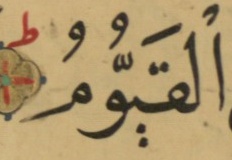 ٱلْقَيُّومُ ۚ ط